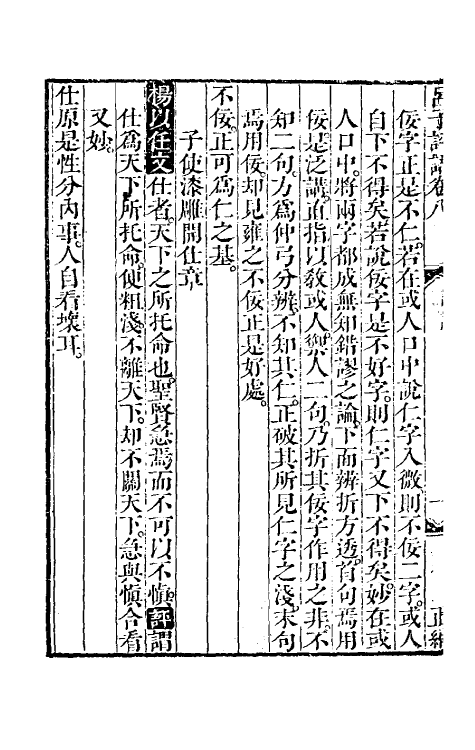 呂子評語卷八
正編
佞字正是不仁。若在或人口中說仁字入微則不佞二字。或人
自下不得矣若說佞字是不好字。則仁字又下不得矣。妙在或
人口中。將兩字都成無知錯謬之論。下面辨折方透。首句焉用
佞是泛講。直指以敎或人。禦人二句。乃折其佞字作用之非。不
知二句。方爲仲弓分辨。不知其仁。正破其所見仁字之淺。末句
焉用佞。却見雍之不佞正是好處。
不佞。正可爲仁之基。
子使漆雕開仕章
楊以任文仕者。天下之所托命也。聖賢急焉而不可以不愼。評謂
仕爲天下所托命。便粗淺。不離天下。却不關天下。急與愼合看
又妙。
仕原是性分內事。人自看壞耳。